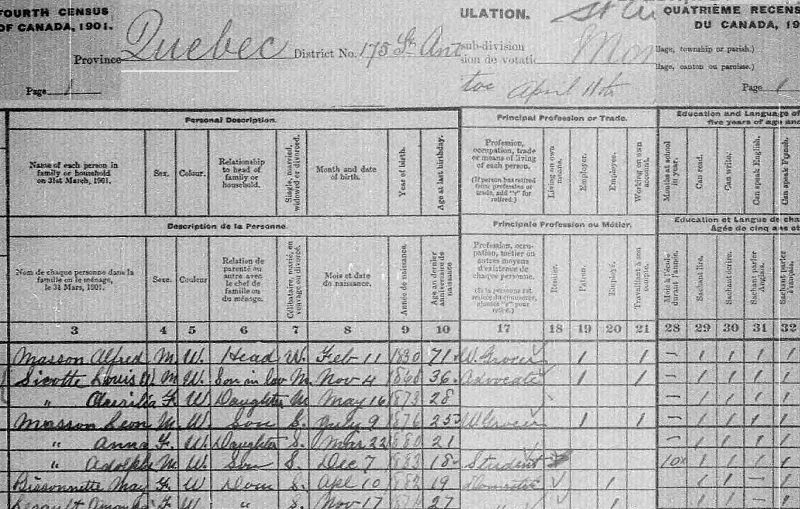 FOURTH CENSUS
OF CANADA, 1901.
Province Quebec District No. 175 St. Ant
Page 1
ULATION.
sub-division
sion de votati
QUATRIÈME RECENS
DU CANADA, 19
llage, township or parish.)
llage, canton ou paroisse.)
to April 11th
Page 1
Personal Description.
Principal Profession or Trade.
Education and Language of
five years of age and
Name of each person in family or household on 31st March, 1901.
Sex.
Colour.
Relationship to head of family or household.
Single, married, widowed or divorced.
Month and date of birth.
Year of birth.
Age at last birthday.
Profession, occupation, trade or means of living of each person.
(If person has retired from profession or trade, add "r" for retired.)
Living on own means.
Employer.
Employee.
Working on own account.
Months at school in year.
Can read.
Can write.
Can speak English.
Can speak French.
Description de la Personne.
Principale Profession ou Métier.
Education et Langue de cha
Agée de cinq ans et
Nom de chaque personne dans la famille en le ménage, le 31 Mars, 1901.
Sexe.
Couleur
Relation de parenté ou autre avec le chef de famille ou du ménage.
Célibataire, marié, en veuvage ou divorcé.
Mois et date de naissance.
Année de naissance.
Age au dernier anniversaire de naissance
Profession, occupation, métier ou autres moyens d'existence de chaque personne.
Rentier.
Patron.
Employé.
Travaillant à son compte.
Mois à l'école durant l'année.
Sachant lire.
Sachant écrire.
Sachant parler Anglais.
Sachant parler Français.
3 4 5 6 7 8 9 10 17 18 19 20 21 28 29 30 31 32
Masson Alfred M. W. Head W. Feb 11 1830 71 W. Grocer 1 1 — 1 1 1 1
Sicotte Louis W M W. Son in law M. Nov 4 36 Advocate 1 1 — 1 1 1 1
" F. W Daughter M May 16 1873 28 — 1 1 1 1
Masson Leon M. W. Son S. July 9 1876 25 W Grocer 1 1 — 1 1 1 1
" Anna F. W Daughter S. Mar 22 1880 21 — 1 1 1 1
" Adolphe M W. Son S. Dec 7 1883 18 Student 10 1 1 1 1
Bissonnette May F. W Dom S. Apl 10 1882 19 Domestic 1 — 1 1 1 1
F W " S. Nov 17 27 1